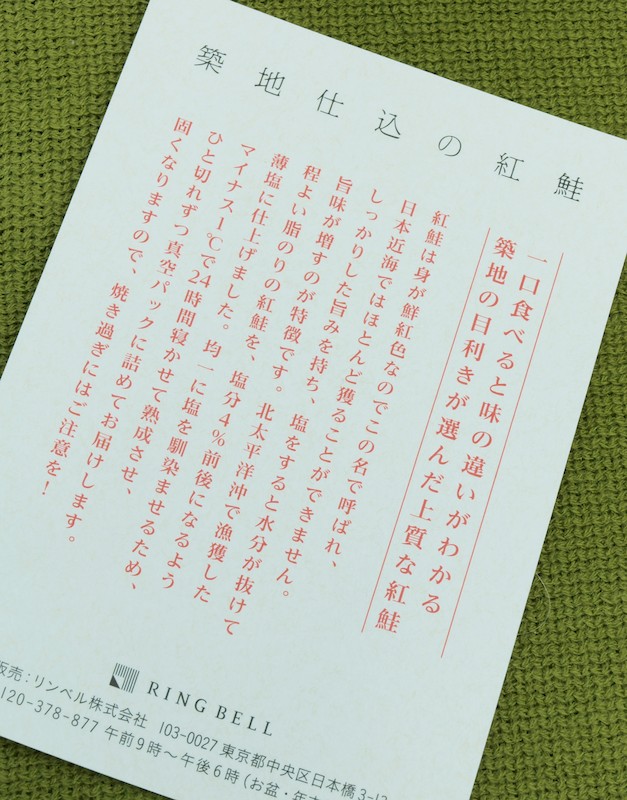 築地仕込の紅鮭
一口食べると味の違いがわかる
築地の目利きが選んだ上質な紅鮭
紅鮭は身が鮮紅色なのでこの名で呼ばれ、
日本近海ではほとんど獲ることができません。
しっかりした旨みを持ち、塩をすると水分が抜けて
旨味が増すのが特徴です。北太平洋沖で漁獲した
程よい脂のりの紅鮭を、塩分4%前後になるよう
薄塩に仕上げました。均一に塩を馴染ませるため、
マイナス1℃で24時間寝かせて熟成させ、
ひと切れずつ真空パックに詰めてお届けします。
固くなりますので、焼き過ぎにはご注意を!
RINGBELL
販売:リンベル株式会社 103-0027 東京都中央区日本橋3-1
120-378-877 午前9時〜午後6時(お盆・年